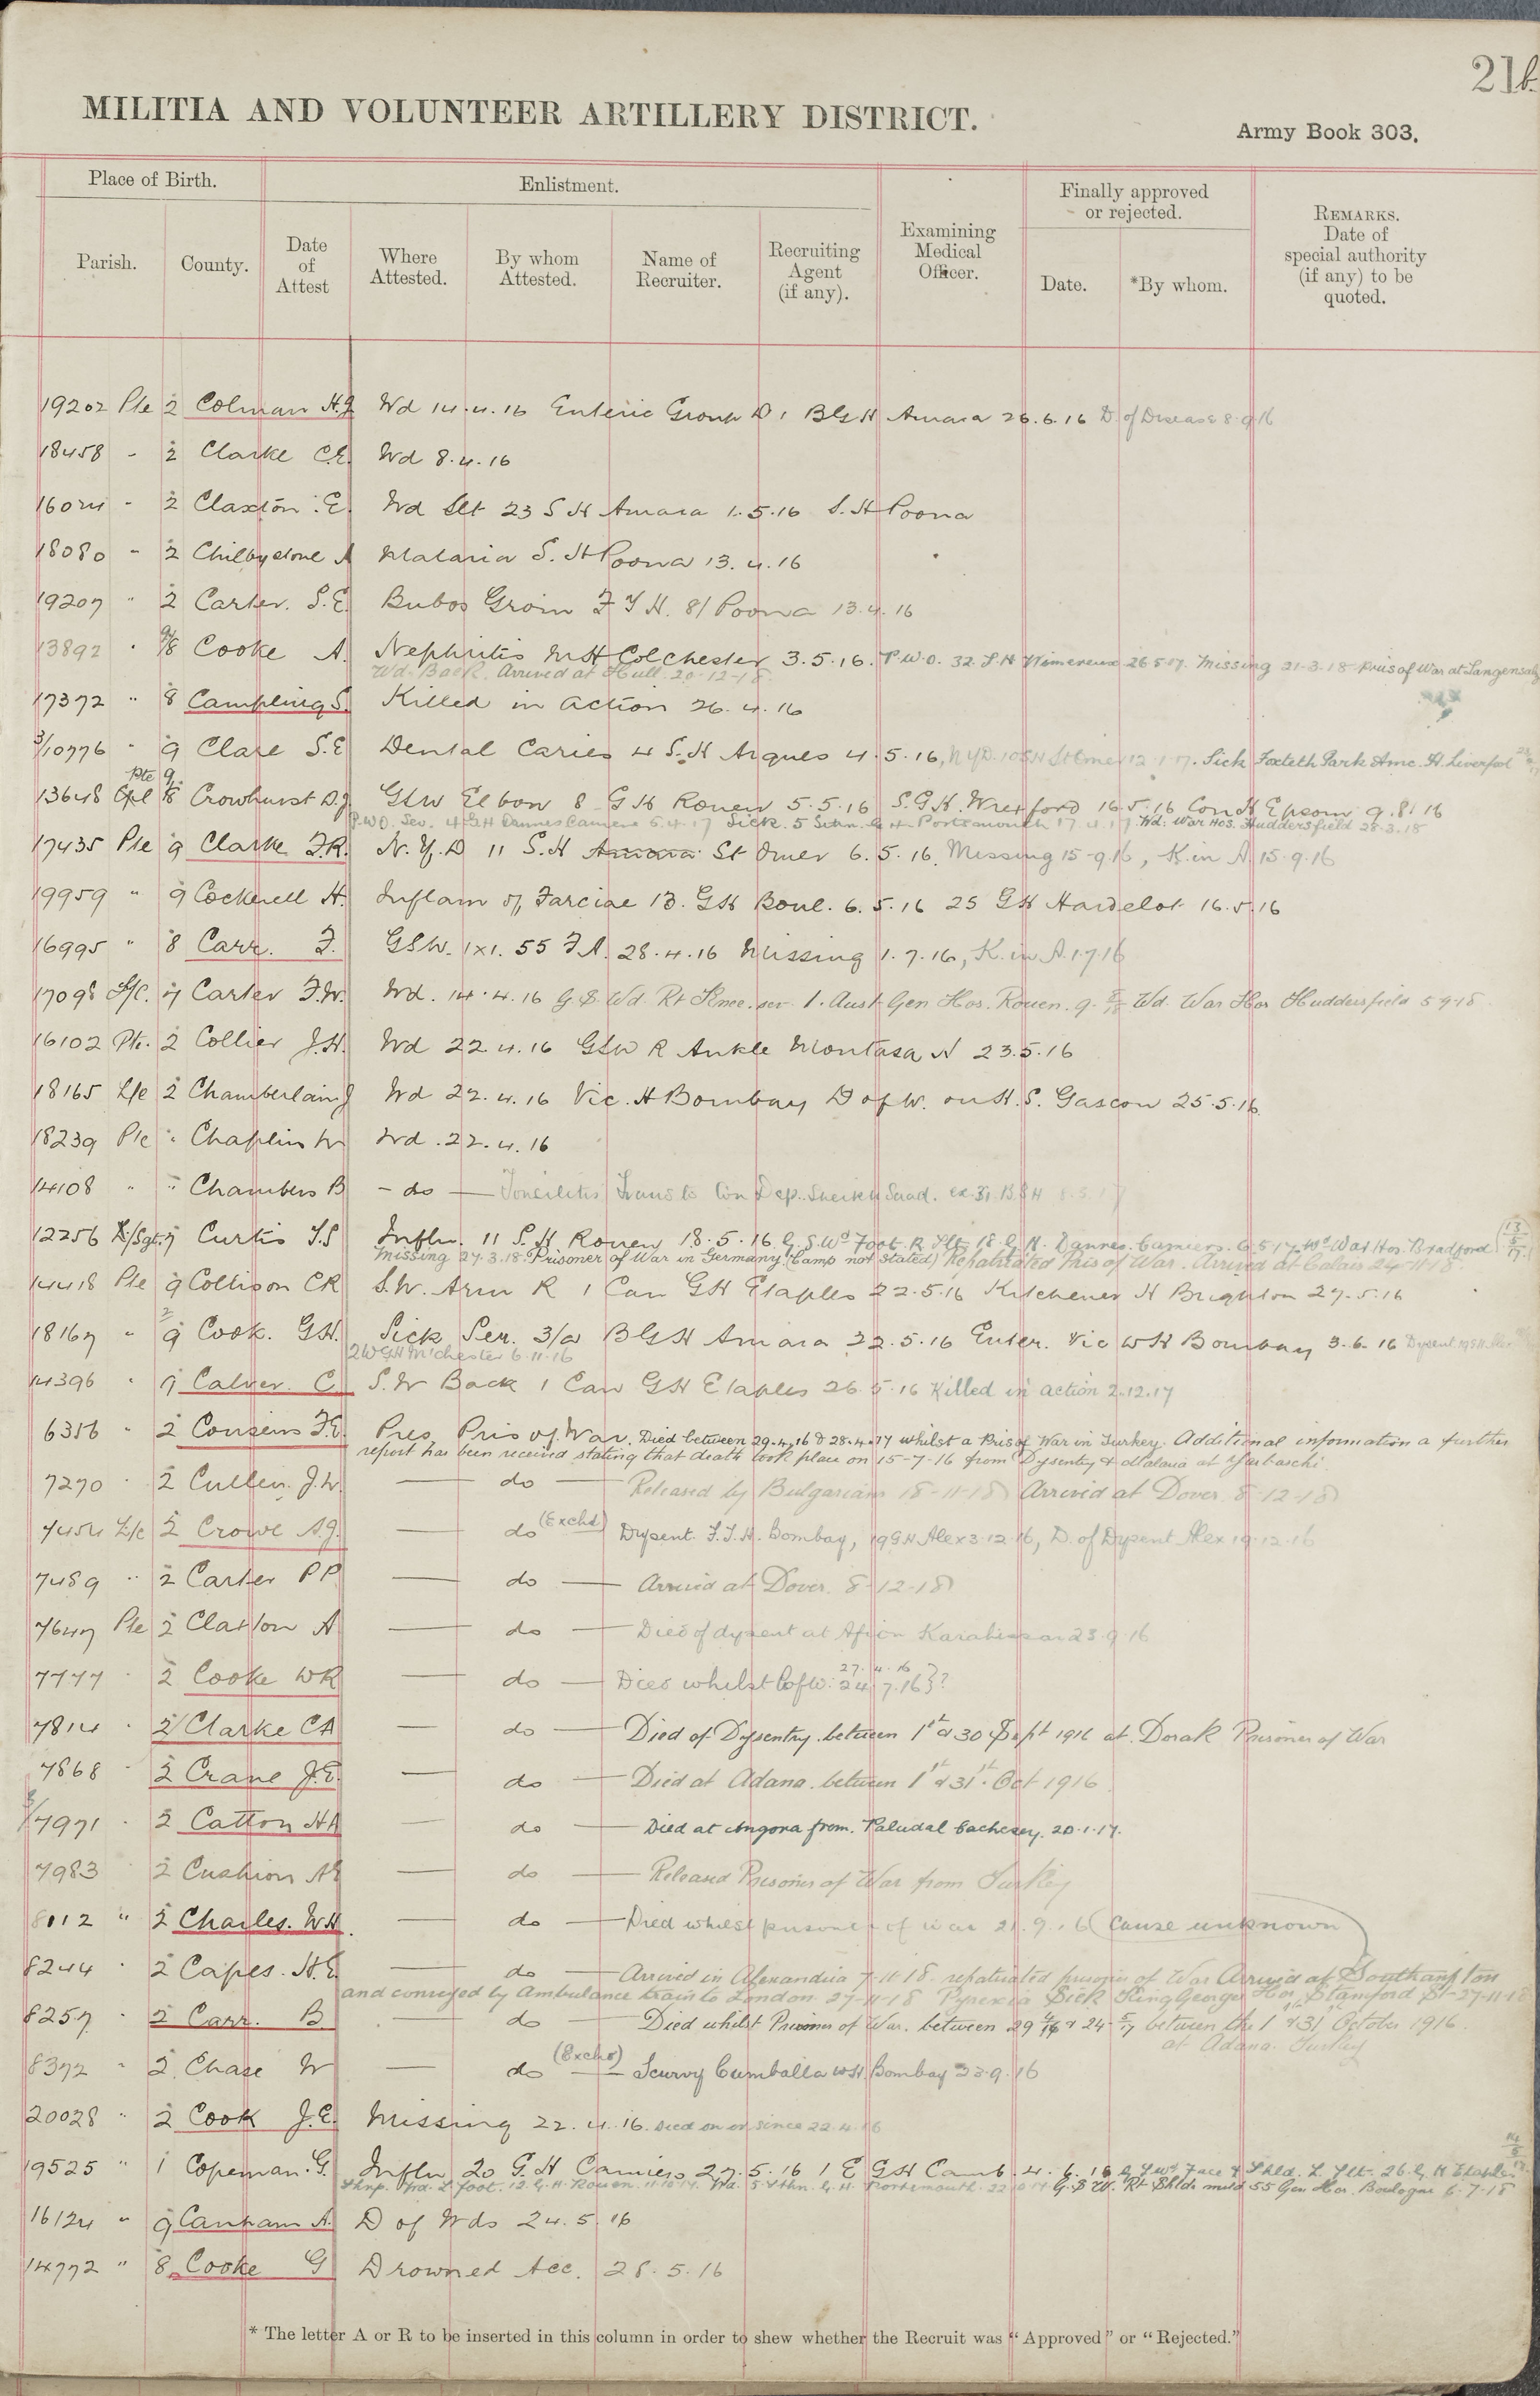 21b.
MILITIA AND VOLUNTEER ARTILLERY DISTRICT.
Army Book 303.
Place of Birth.
Enlistment.
Examining Medical Officer.
Finally approved or rejected.
REMARKS. Date of special authority (if any) to be quoted.
Parish.
County.
Date of Attest
Where Attested.
By whom Attested.
Name of Recruiter.
Recruiting Agent (if any).
Date.
*By whom.
19202 Pte 2 Colman H.J. Wd 14.4.16 Enteric Group D 1 BGH Amara 26.6.16 D. of Disease 8.9.16
18458 " 2 Clarke C.E. Wd 8.4.16
16024 " 2 Claxton E. Wd Slt 23 S H Amara 1.5.16 S. H Poona
18080 " 2 A Malaria S. H Poona 13.4.16
19207 " 2 Carter. S.E. Bubos Groin F T H. 81 Poona 13.4.16
13892 " 9/8 Cooke A. Nephritis M H Colchester 3.5.16. P.U.O. 32. S.H Wimereux 26.5.17. Missing 21-3-18 Pris of War at Langensalz
Wd. Back. Arrived at Hull. 20-12-18
17372 " 8 Campling S. Killed in Action 26.4.16
3/10776 " 9 Clare S.E Dental Caries 4 S.H Arques 4.5.16, N.Y.D. 10 S.H St Omer 12.1.17. Sick Toxteth Park Amc. H. Liverpool
Pte 9
13648 Cpl 8 Crowhurst D.J. GSW Elbow 8 G H Rouen 5.5.16 S.G.H. Wrexford 16.5.16 Con H Epsom 9.8.16
P.U.O. Sev. 4 G.H Dannes Camiers 5.4.17 Sick. 5 Sthn. G H. Portsmouth 17.4.17 Wd: War Hos. Huddersfield 28.3.18
17435 Pte 9 Clarke F.R. N.Y.D 11 S.H Amara St Omer 6.5.16. Missing 15-9.16, K. in A. 15.9.16
19959 " 9 Cockerell H. Inflam of Farciae 13. GH Boul. 6.5.16 25 GH Hardelot 16.5.16
16995 " 8 Carr. F. GSW. 1x1. 55 F.A. 28.4.16 Missing 1.7.16, K. in A. 1.7.16
17098 L/C. 7 Carter F.W. Wd. 14.4.16 G.S. Wd. Rt Knee. sev. 1. Aust. Gen Hos. Rouen. 9. Wd. War Hos Huddersfield 5-9-18
16102 Pte. 2 Collier J.H. Wd 22.4.16 GSW R Ankle Montasa H 23.5.16
18165 L/c 2 Chamberlain J Wd 22.4.16 Vic. H Bombay D of W. on H.S. Gascon 25.5.16
18239 Pte " Chaplin W Wd. 22.4.16
14108 " " Chambers B - do — Tonsilitis Trans to Con Dep. Sheikh Saad. ex 31. B.G H
12256 L/Sgt. 7 Curtis T.S Influ. 11 S.H Rouen 18.5.16. G.S.Wd Foot R Slt 18. G. H. Dannes. Camiers. 6.5.17. Wd War Hos. Bradford 13/5/17
Missing 27.3.18. Prisoner of War in Germany (Camp not Stated) Repatriated Pris of War. Arrived at Calais 24-11-18.
14418 Pte 9 Collison CR S.W. Arm R 1 Can GH Etaples 22.5.16 Kitchener H Brighton 27.5.16
18167 " 2 9 Cook. G.H. Sick Ser. 3/a BGH Amara 22.5.16 Enter. Vic W H Bombay 3.6.16
2 W G H M'chester 6.11.16
14396 " 7 Calver. C. S.W Back 1 Can GH Etaples 26.5.16 Killed in action 2.12.17
6356 " 2 Couzens F.E. Pres Pris of War. Died between 29.4.16 & 28.4.17 whilst a Pris of War in Turkey. Additional information a further
report has been received stating that death took place on 15-7-16 from Dysentry & Malaria at Yarbaschi
7270 " 2 Cullen. J.W. — do — Released by Bulgarians 18-11-18 Arrived at Dover. 8-12-18
7454 L/c 2 Crowe A.J. — do (Exchd) Dysent. F.T.H. Bombay, 19 G.H Alex 3.12.16, D. of Dysent Alex 19.12.16
7489 " 2 Carter P P — do — Arrived at Dover. 8-12-18
7647 Pte 2 Claxton A — do — Died of dysent at Afion Karahissar 23.9.16
7777 " 2 Cooke WR — do — Died whilst P of W: 27.4.16 24.7.16}?
7814 " 2 Clarke CA — do — Died of Dysentry. between 1st & 30 Sept 1916 at Dorak Prisoner of War
7868 " 2 Crane J.E. — do — Died at Adana. between 1st & 31st Oct 1916.
3/7971 " 2 Catton HA — do — Died at Angora from. Paludal Cachexy. 20.1.17.
7983 2 Cushion AE — do — Released Prisoner of War from Turkey
8112 " 2 Charles. W.H. — do — Died whilst prisoner of war 21.9.16 (Cause unknown
8244 " 2 Capes. H.E. — do — Arrived in Alexandria 7-11-18. repatriated prisoner of War Arrived at Southampton
and conveyed by Ambulance train to London 27-11-18 Pyrexia Sick King George Hos Stamford St-27-11-18
8257 " 2 Carr. B. — do — Died whilst Prisoner of War. between 29 4/16 & 24 5/17 between the 1st & 31st October 1916.
at Adana. Turkey
8372 " 2 Chase W — do (Exchd) — Scurvy Cumballa W H. Bombay 23.9.16
20028 " 2 Cook J.E. Missing 22.4.16. Died on or since 22.4.16
19525 " 1 Copeman. G. Influ 20 G.H Camiers 27.5.16 1 E GH Camb. 4.6.16 G.S Wd Face & Shld. L. Slt. 26. G. H Etaples
Wd. L foot. 12. G. H. Rouen. 11.10.17. Wd. 5 Sthn. G. H. Portsmouth. 22.10.17 G.S.W. Rt Shldr mild 55 Gen Hos. Boulogne 6-7-18
16124 " 9 Canham A. D of Wds 24.5.16
14772 " 8 Cooke G Drowned Acc. 28.5.16
* The letter A or R to be inserted in this column in order to shew whether the Recruit was "Approved" or "Rejected."